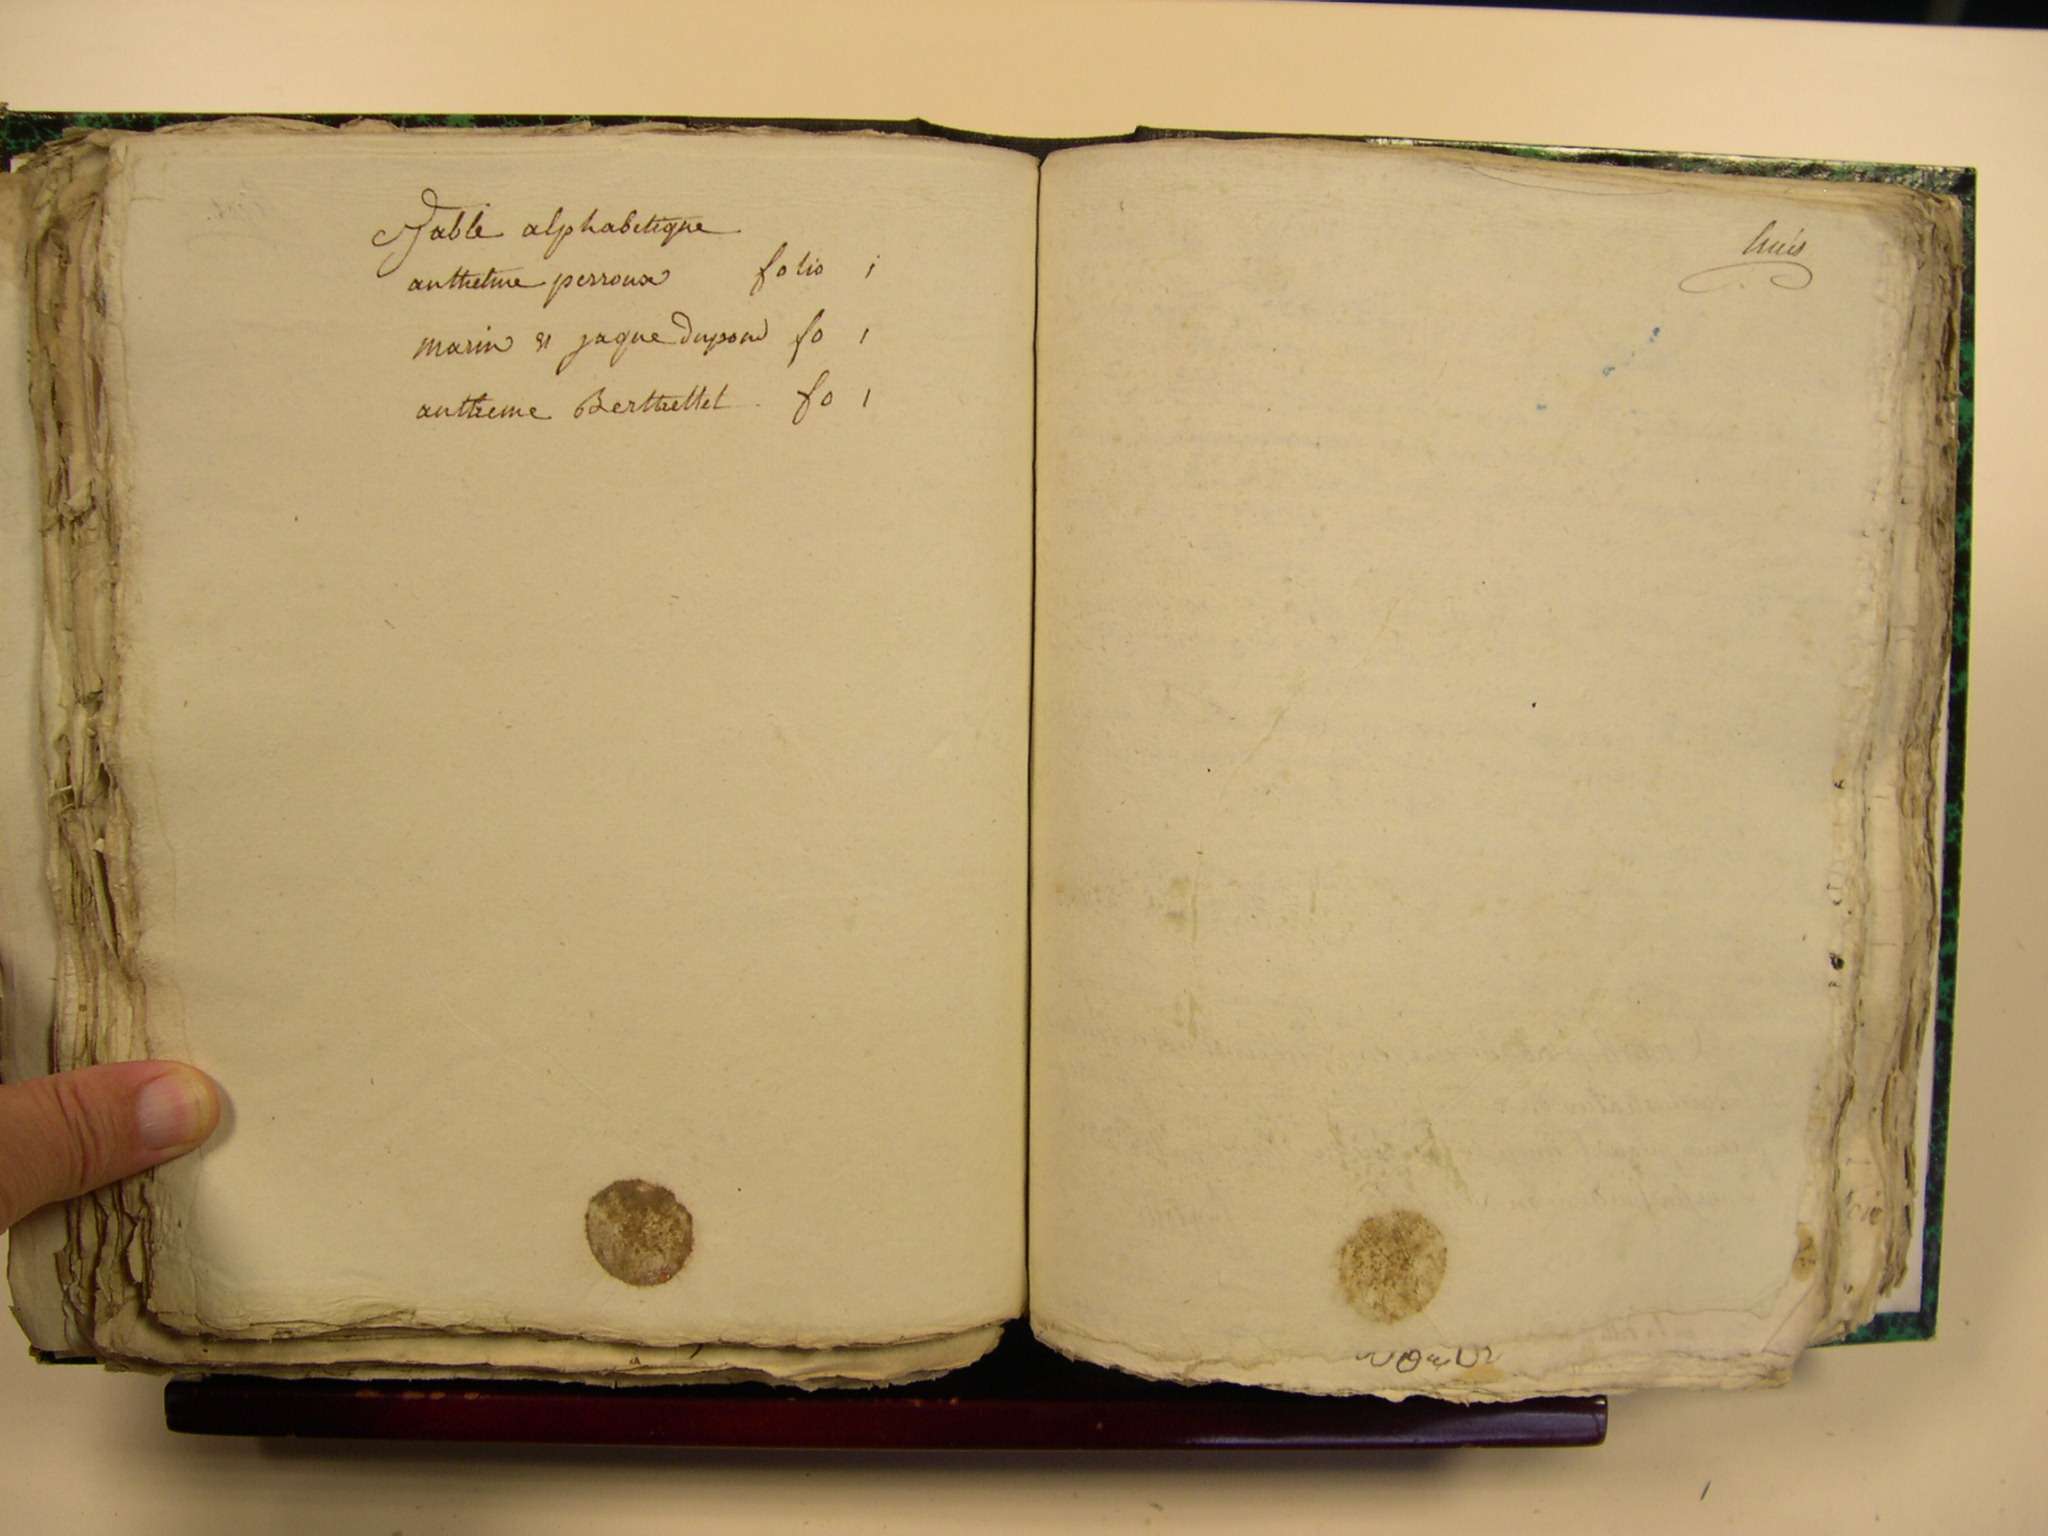 Table alphabetique
anthelme perroux folio 1
marin et jaque dupond fo 1
antheme Berthellet fo 1